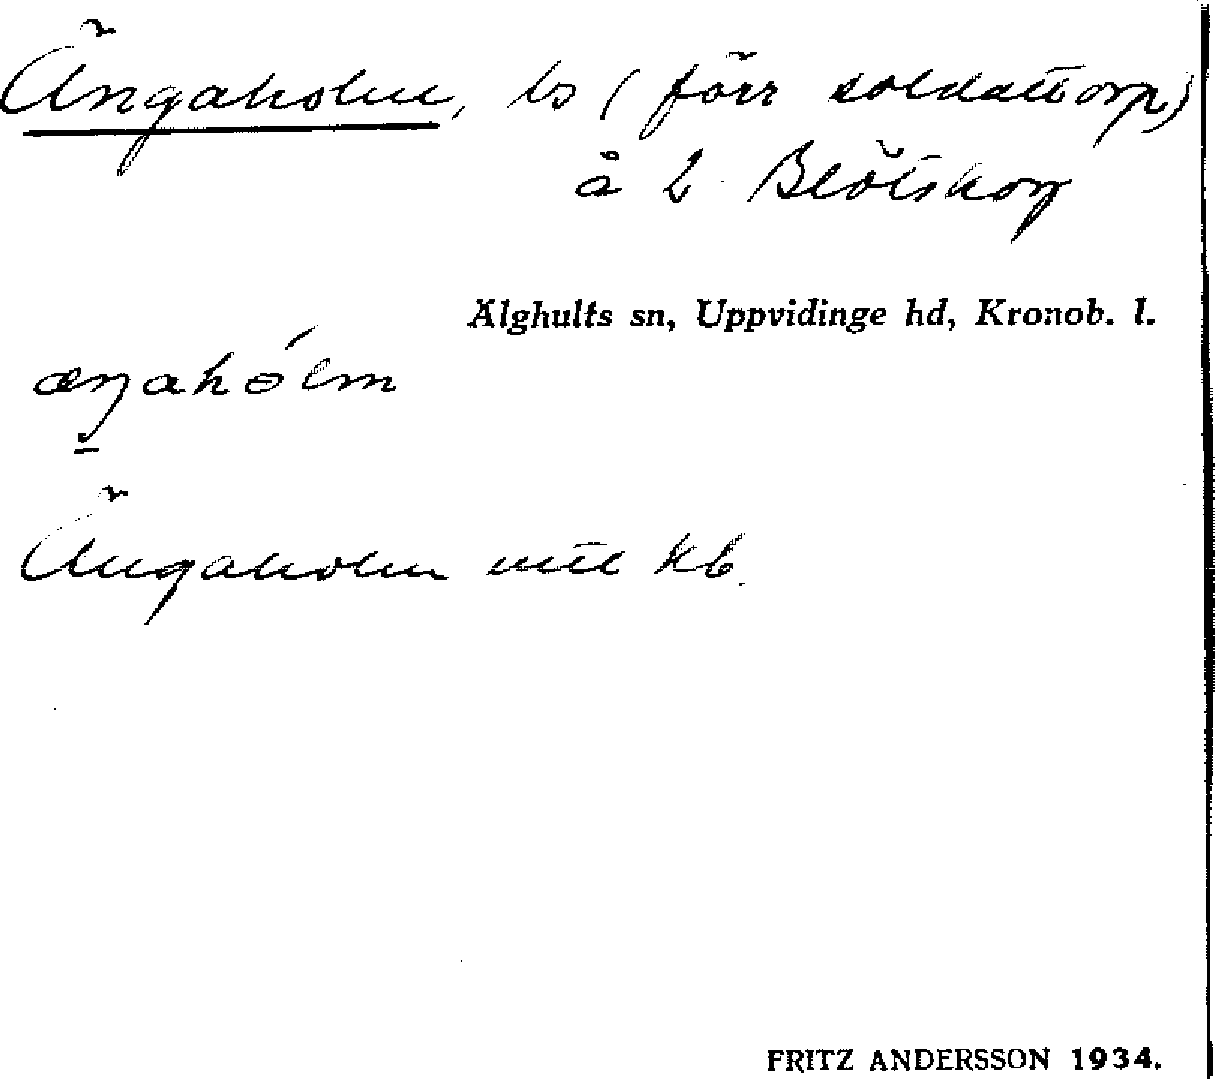 Ängaholm, ls (förr soldattorp)
å 2 Blötskog
Älghults sn, Uppvidinge hd, Kronob. l.
æŋahólm
Ängaholm utl kb.
FRITZ ANDERSSON 1934.